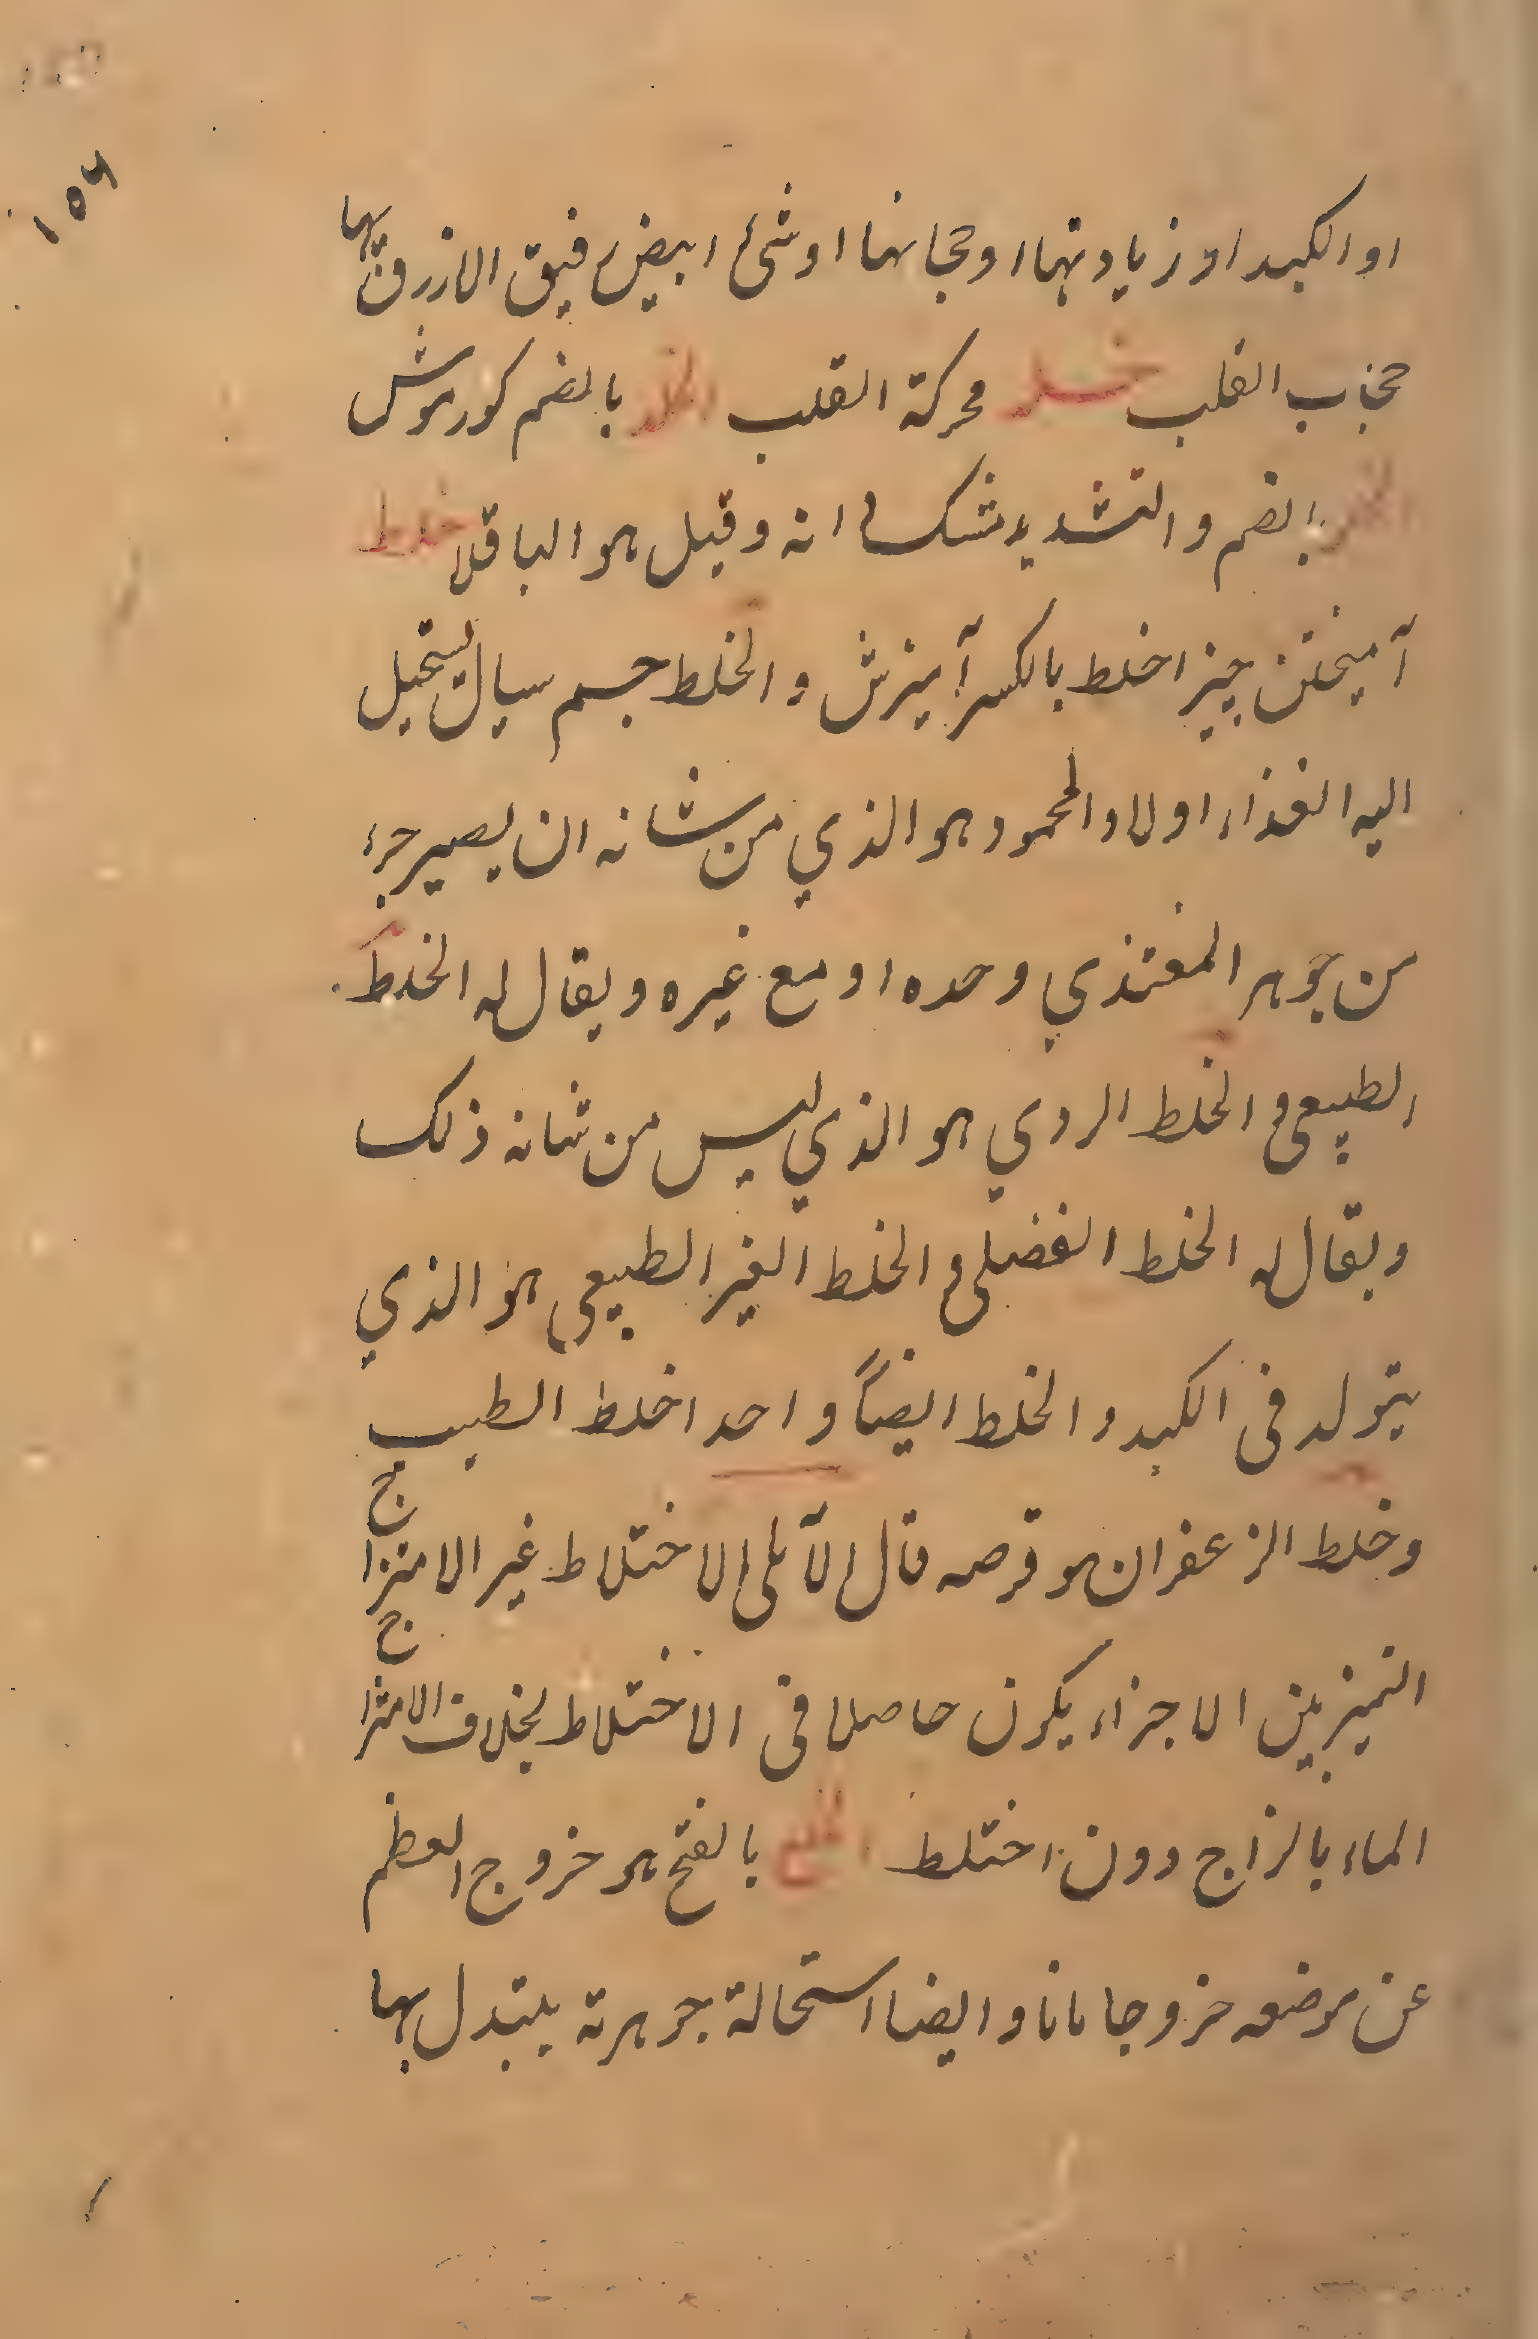 ١٥٧
او الكبد او زيادتها او حجابها او شئ ابيض رقيق الازرق بها
حجاب القلب خلد محركة القلب الخلد بالضم كورموش
بالضم والتشديد مشك دانه وقيل هو الباقلا خلط
آميختن چيز اخلط بالكسر آميزش والخلط جسم سيال يستحيل
اليه الغذاء اولا والمحمود هو الذي من شانه ان يصير جزء
من جوهر المغتذي وحده او مع غيره ويقال له الخلط
الطبيعى والخلط الردي هو الذي ليس من شانه ذلك
ويقال له الخلط الفضلى والخلط الغير الطبيعى هو الذي
يتولد فى الكبد والخلط ايضاً واحد اخلط الطيب
وخلط الزعفران هو قرصه قال الآملى الاختلاط غير الامتزاج
التميز بين الاجزاء يكون حاصلا فى الاختلاط بخلاف الامتزاج
الماء بالزاج دون اختلط الخلع بالفتح هو خروج العظم
عن موضعه خروجا تاما وايضا استحالة جوهرية يتبدل بها